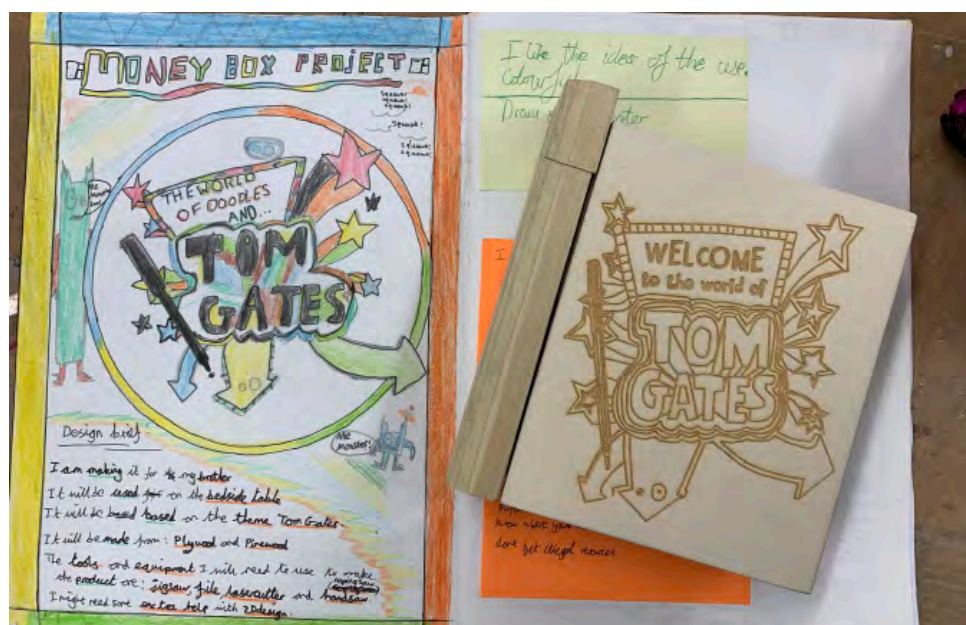 MONEY BOX PROJECT
squawk!
squawk!
squawk!
squawk!
squawk!
squawk!
THE WORLD
OF DOODLES
AND...
TOM
GATES
Me
monster!
Design brief
I am making it for my brother
It will be used on the bedside table
It will be based on the theme Tom Gates.
It will be made from: Plywood and Pinewood
The tools and equipment I will need to use to make
the product are: jigsaw, file, lasercutter and handsaw.
I might need some help with 2Ddesign.
I like the idea of the use.
Colourful
Draw
I
dont get illegal
WELCOME
to the world of
TOM
GATES